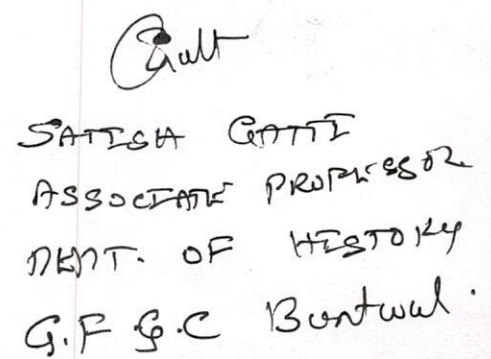 SATISH GATTI
ASSOCIATE PROFESSOR
DEPT. OF HISTORY
G.F.G.C Bantwal.